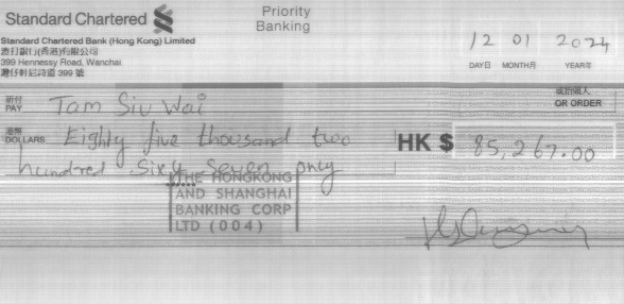 Standard Chartered
Priority
Banking
Standard Chartered Bank (Hong Kong) Limited
渣打銀行(香港)有限公司
399 Hennessy Road, Wanchai
灣仔軒尼詩道 399 號
12 01 2024
DAY日 MONTH月 YEAR年
祈付
PAY Tam Siu Wai
或持票人
OR ORDER
港幣
DOLLARS Eighty five thousand two
hundred sixy seven only
HK $ 85,267.00
THE HONGKONG
AND SHANGHAI
BANKING CORP
LTD (004)